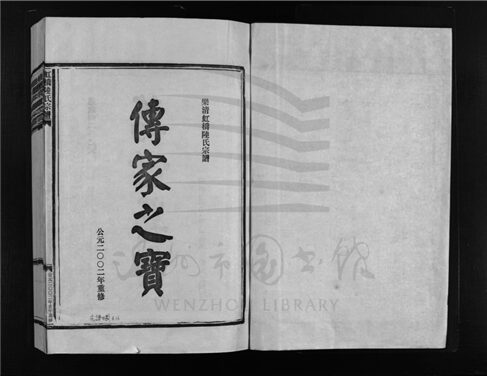 樂清虹橋陸氏宗譜
傳家之寶
公元二〇〇二年重修
虹橋陸氏宗譜
溫州市圖書館
WENZHOU LIBRARY